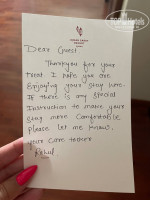 TopHotels
Dear Guest
Thankyou for your
trust I hope you are
Enjoying your stay here.
If there is any special
Instruction to make your
stay more comfortable
please let me know.
your care taker